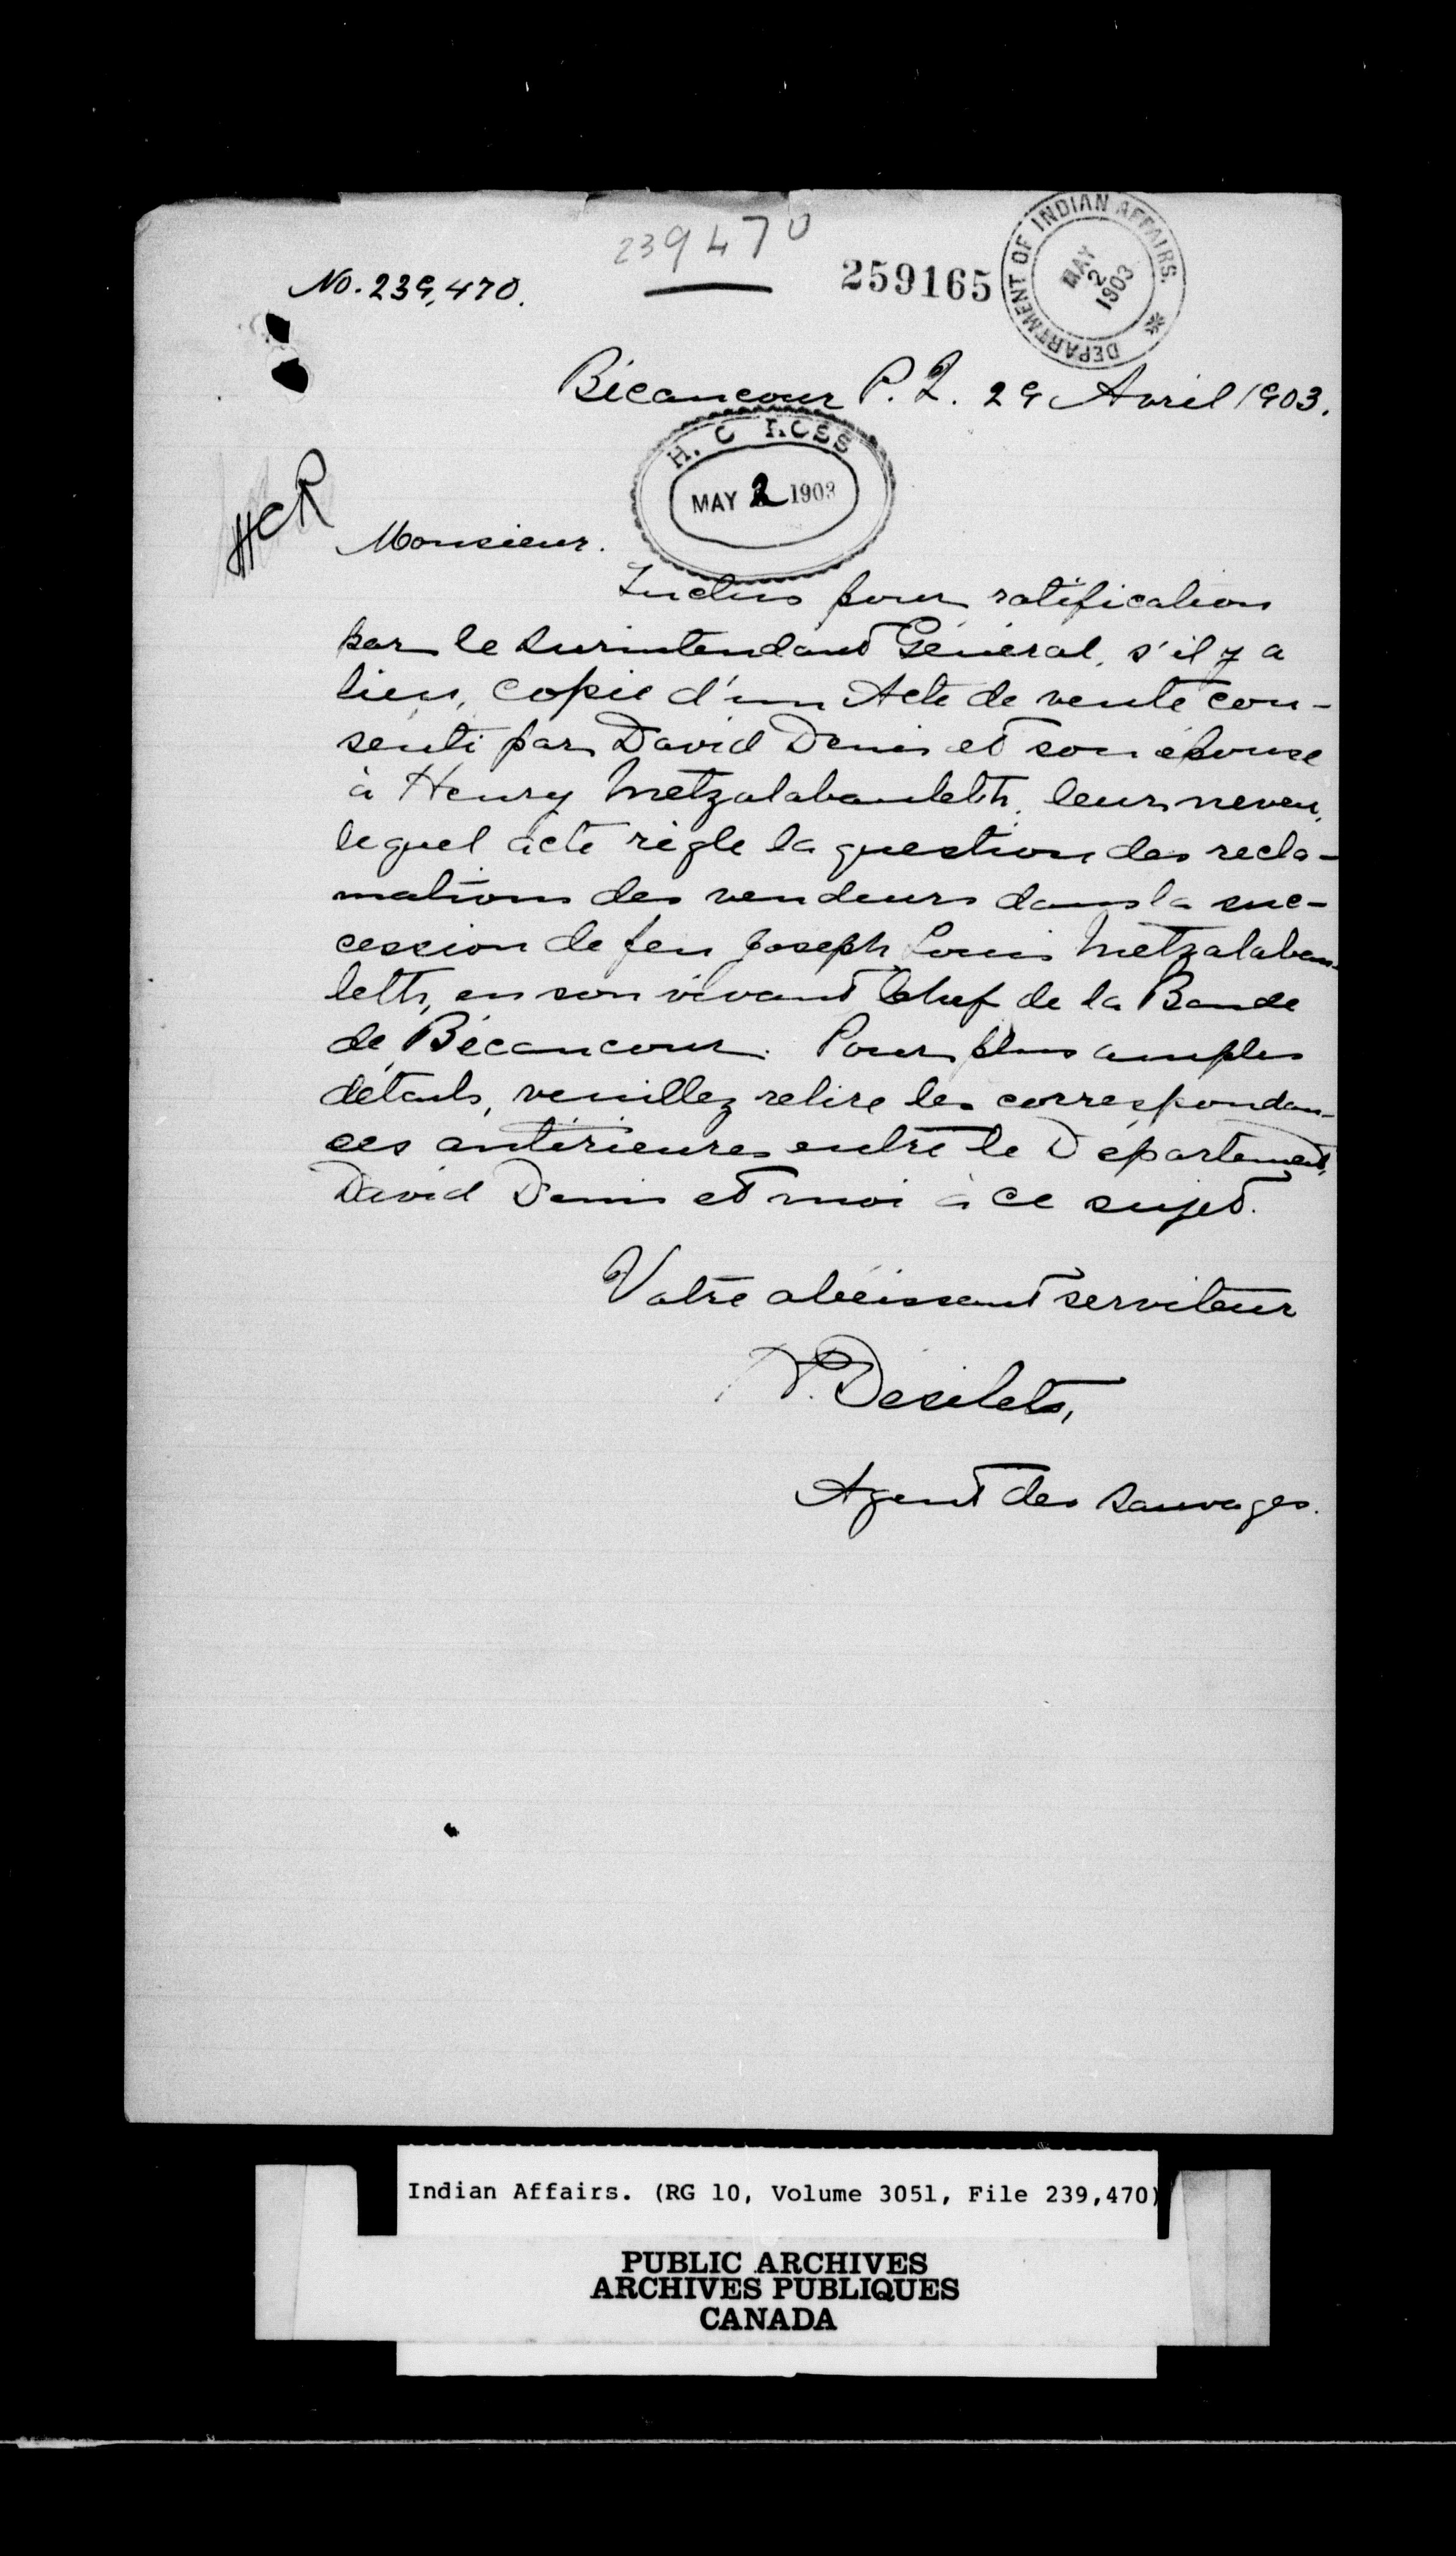 239470
No. 239,470.
259165
DEPARTMENT OF INDIAN AFFAIRS.
MAY
2
1903
Bécancour P. Q. 29 Avril 1903.
H. C ROSS
MAY 2 1903
HCR
Monsieur.
Inclus pour ratification
par le Surintendant Général, s'il y a
lieu, copie d'un Acte de vente con-
senti par David Denis et son épouse
à Henry Metzalabanleth, leur neveu,
lequel acte règle la question des recla-
mations des vendeurs dans la suc-
cession de feu Joseph Louis Metzalaban-
leth, en son vivant Chef de la Bande
de Bécancour. Pour plus amples
détails, veuillez relire les correspondan-
ces antérieures entre le Département,
David Denis et moi à ce sujet.
Votre obéissant serviteur
Desilets,
Agent des Sauvages.
Indian Affairs. (RG 10, Volume 3051, File 239,470)
PUBLIC ARCHIVES
ARCHIVES PUBLIQUES
CANADA